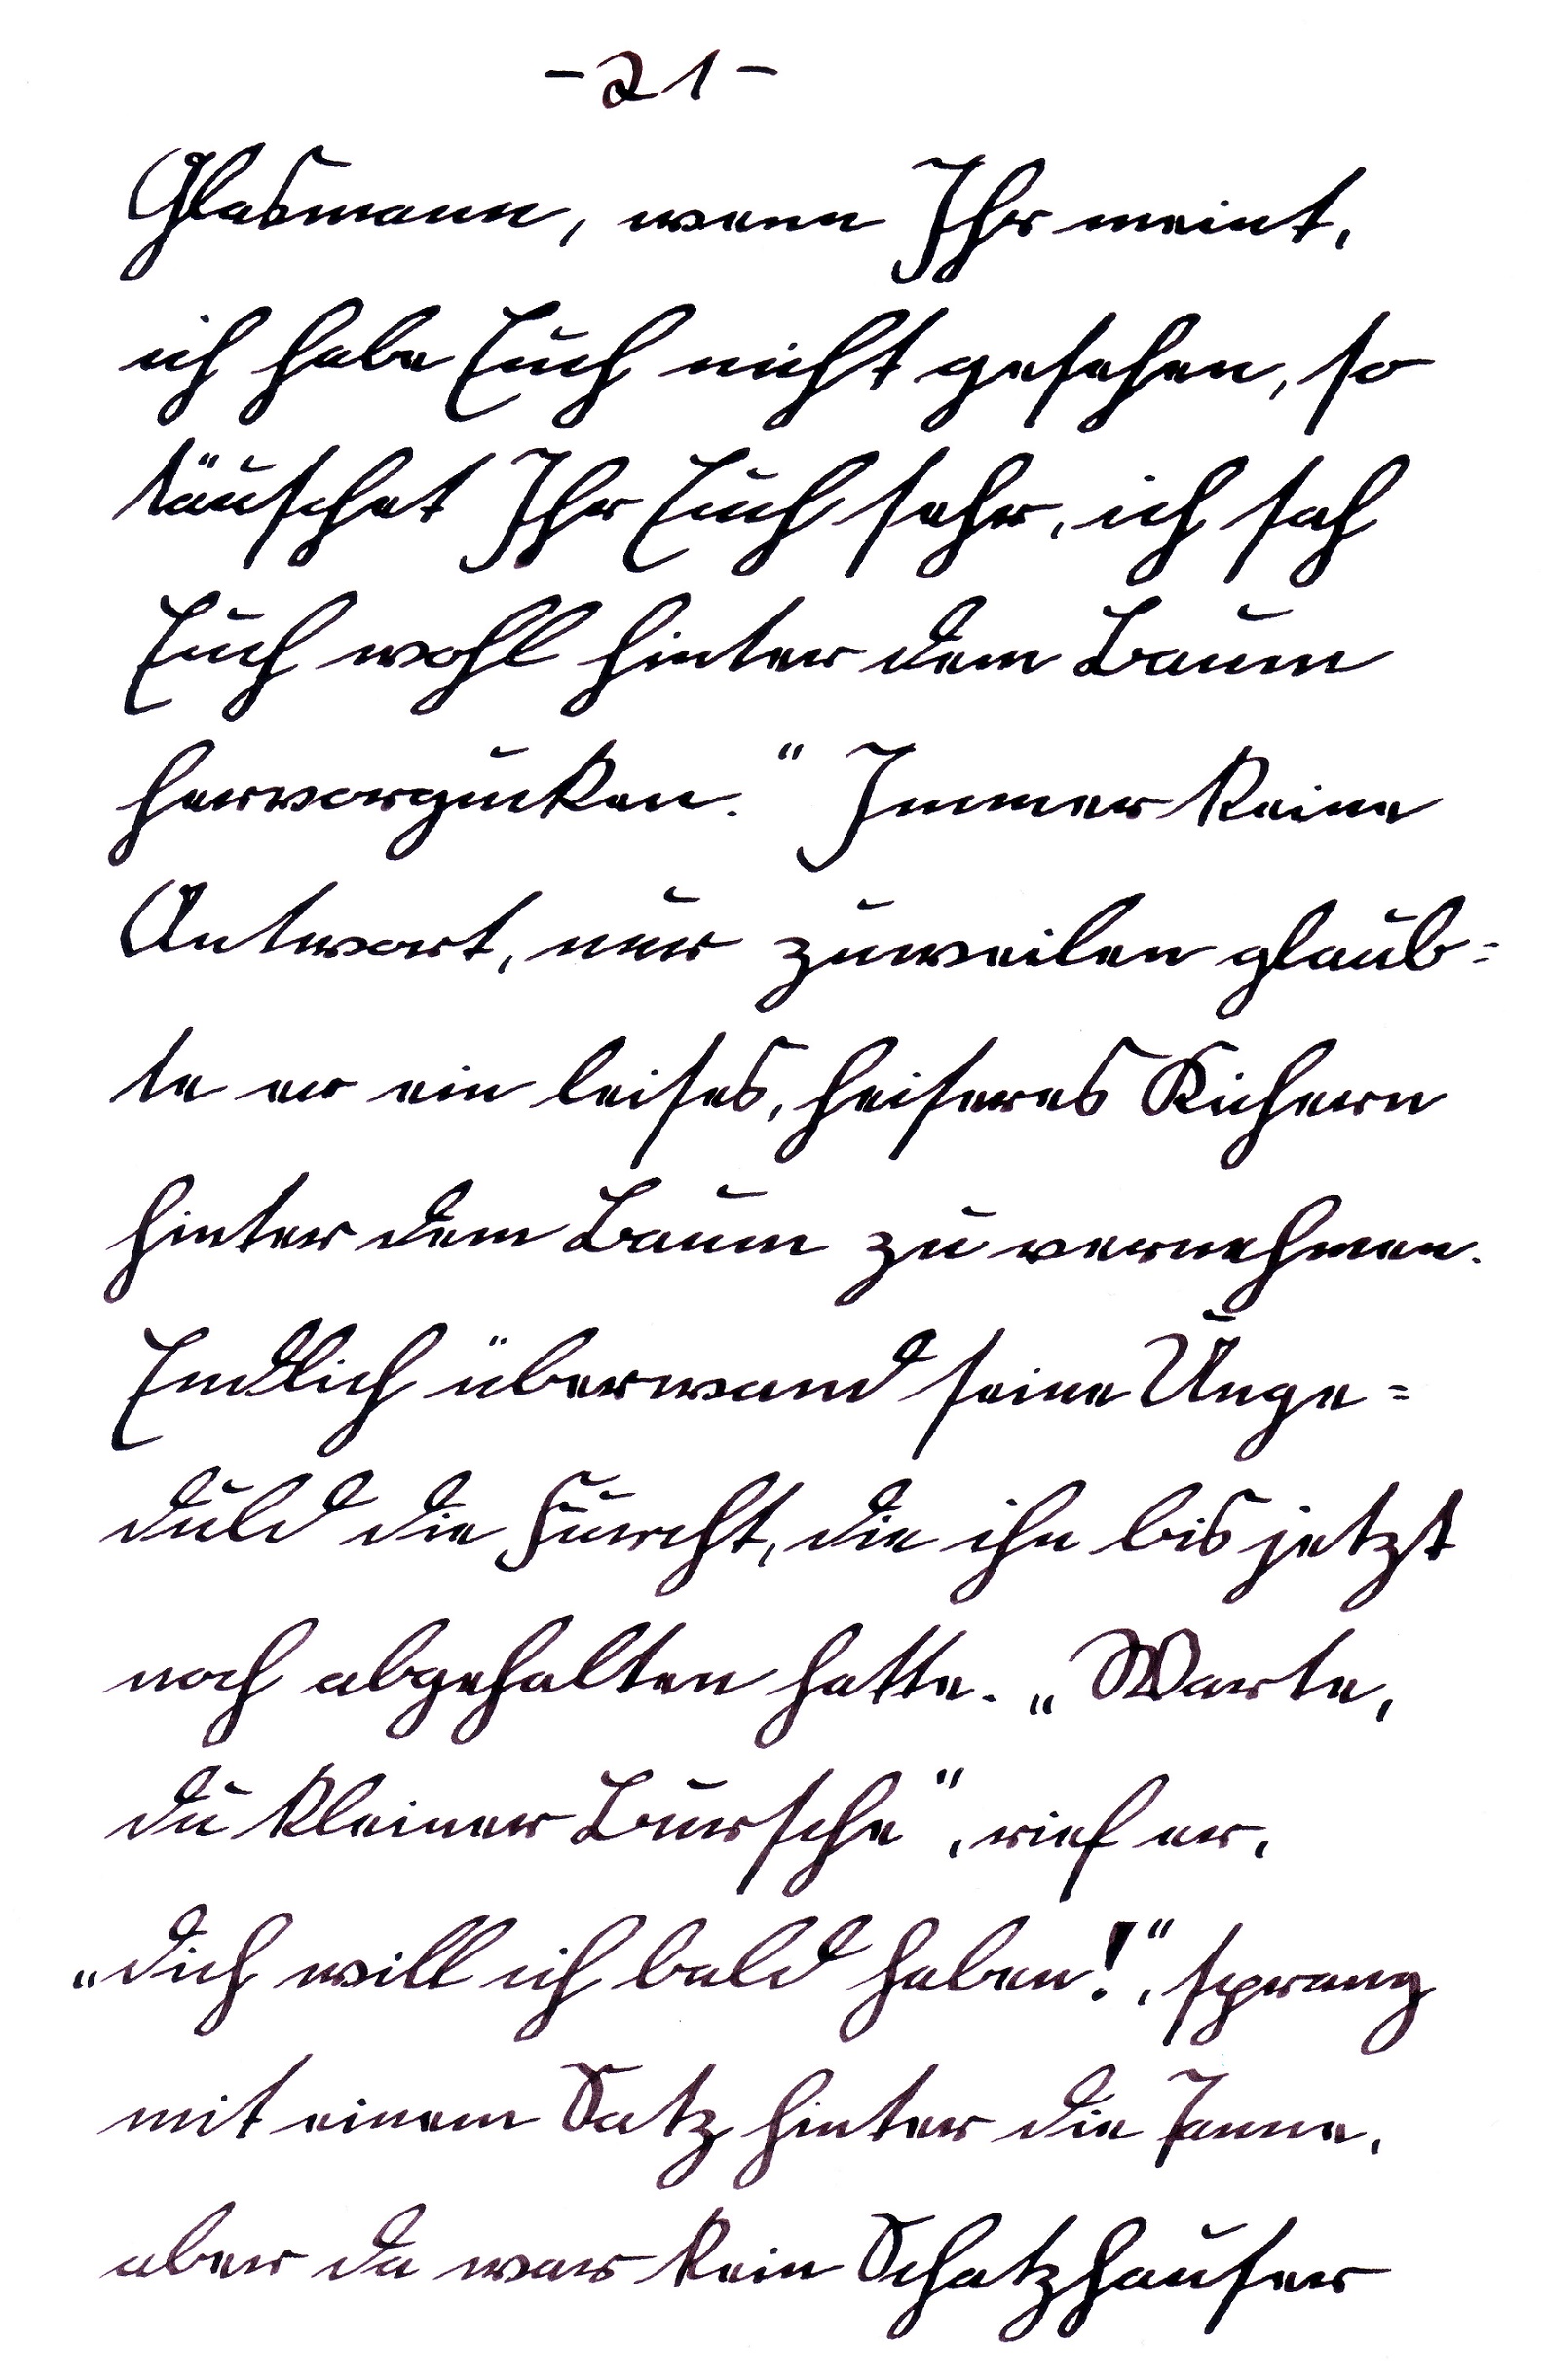 -21-
Glasmann, wenn Ihr meint,
ich habe Euch nicht gesehen, so
täuschet Ihr Euch sehr, ich sah
Euch wohl hinter dem Baum
hervorgucken.“ Immer keine
Antwort, nur zuweilen glaub=
te er ein leises, heiseres Kichern
hinter dem Baum zu vernehmen.
Endlich überwand seine Unge=
duld die Furcht, die ihn bis jetzt
noch abgehalten hatte. „Warte,
du kleiner Bursche“, rief er,
„dich will ich bald haben!“, sprang
mit einem Satz hinter die Tanne,
aber da war kein Schatzhauser